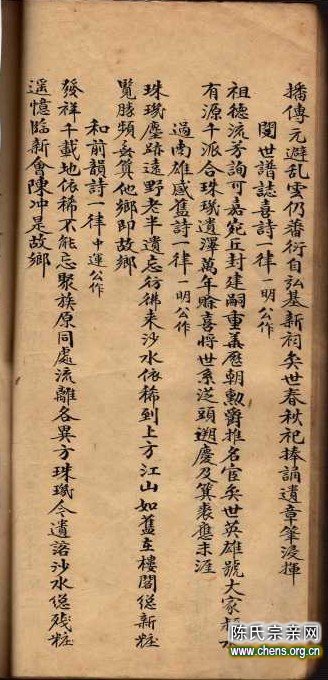 播傳元避乱雲仍番衍自弘基新祠奕世春秋祀捧誦遺章筆浸揮
閱世譜誌喜詩一律一明公作
祖德流芳詢可嘉宛丘封建嗣重華歷朝勳爵推名宦奕世英雄號大家
有源千派合珠璣遺澤萬年賒喜將世系從頭遡慶及箕裘應未涯
過南雄感舊詩一律一明公作
珠璣塵跡遠野老半遺忘彷彿来沙水依稀到上方江山如舊在樓閣總新粧
覽勝頻無算他鄉即故鄉
和前韻詩一律中運公作
發祥千載地依稀不能忘聚族原同處流離各異方珠璣今遺落沙水總殘粧
遥憶臨新會陳冲是故鄉
陈氏宗亲网
www.chens.org.cn